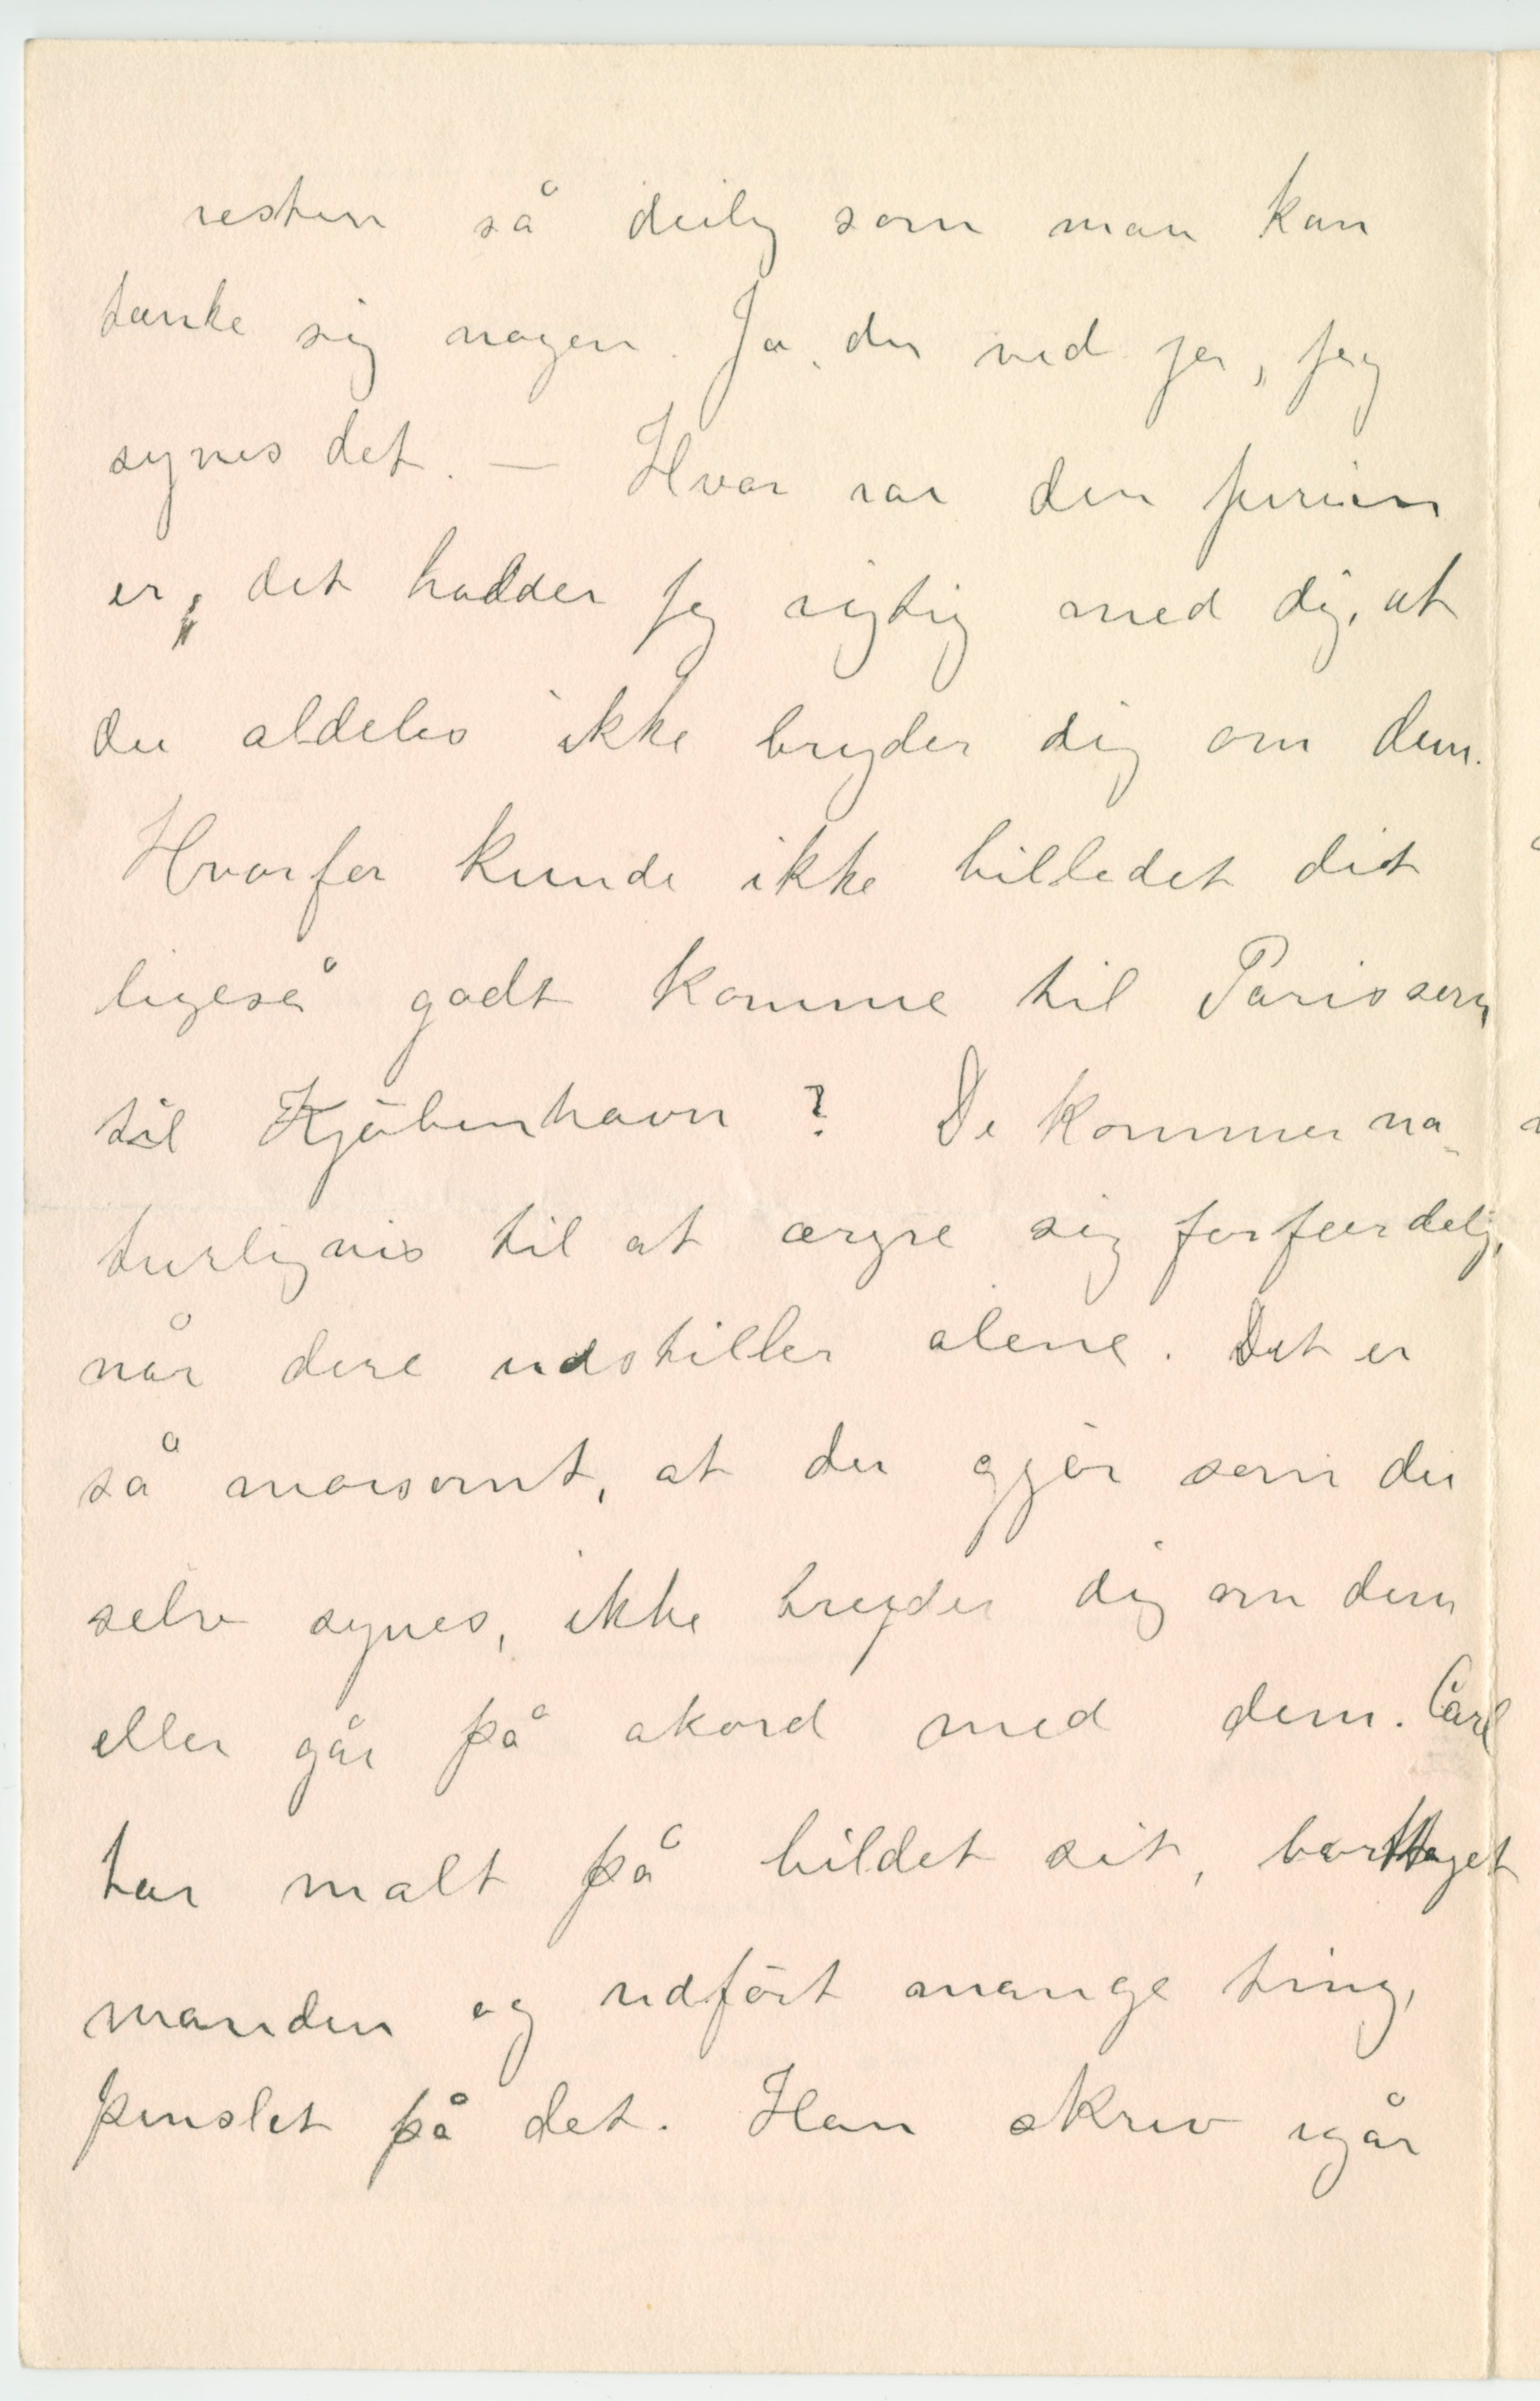 resten så deilig som man kan
tænke sig nogen. Ja, du ved jo, jeg
synes det. — Hvor rar den jurien
er, det holder jeg rigtig med dig, at
du aldeles ikke bryder dig om dem.
Hvorfor kunde ikke billedet dit
ligeså godt komme til Paris som
til Kjøbenhavn? De kommer na-
turligvis til at ærgre sig forfærdelig,
når dere udstiller alene. Det er
så morsomt, at du gjør som du
selv synes, ikke bryder dig om dem
eller går på akord med dem. Carl
har malt på bildet sit, borttaget
manden og udført mange ting,
penslet på det. Han skrev igår